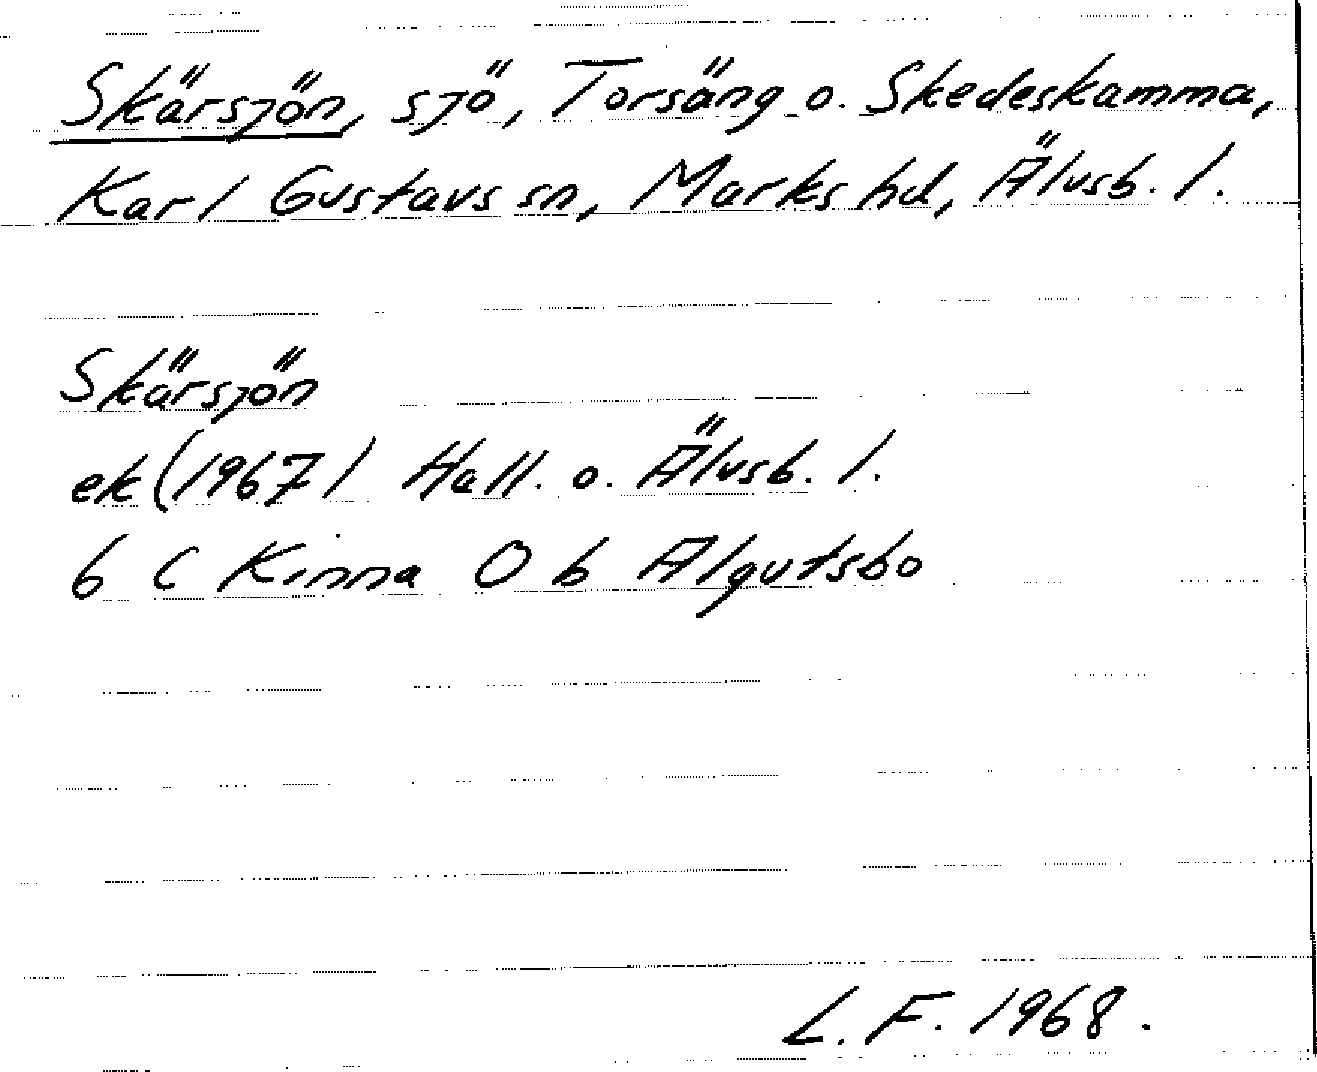 Skärsjön, sjö, Torsäng o. Skedeskamma,
Karl Gustavs sn, Marks hd, Älvsb. l.
Skärsjön
ek (1967) Hall. o. Älvsb. l.
6 C Kinna 0 b Algutsbo
L. F. 1968.